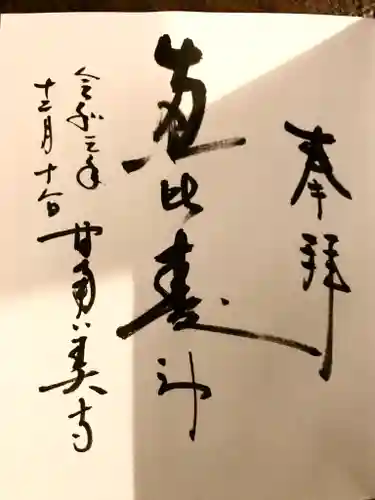 奉拝
恵比寿神
令和元年
十二月十六日
甘南美寺